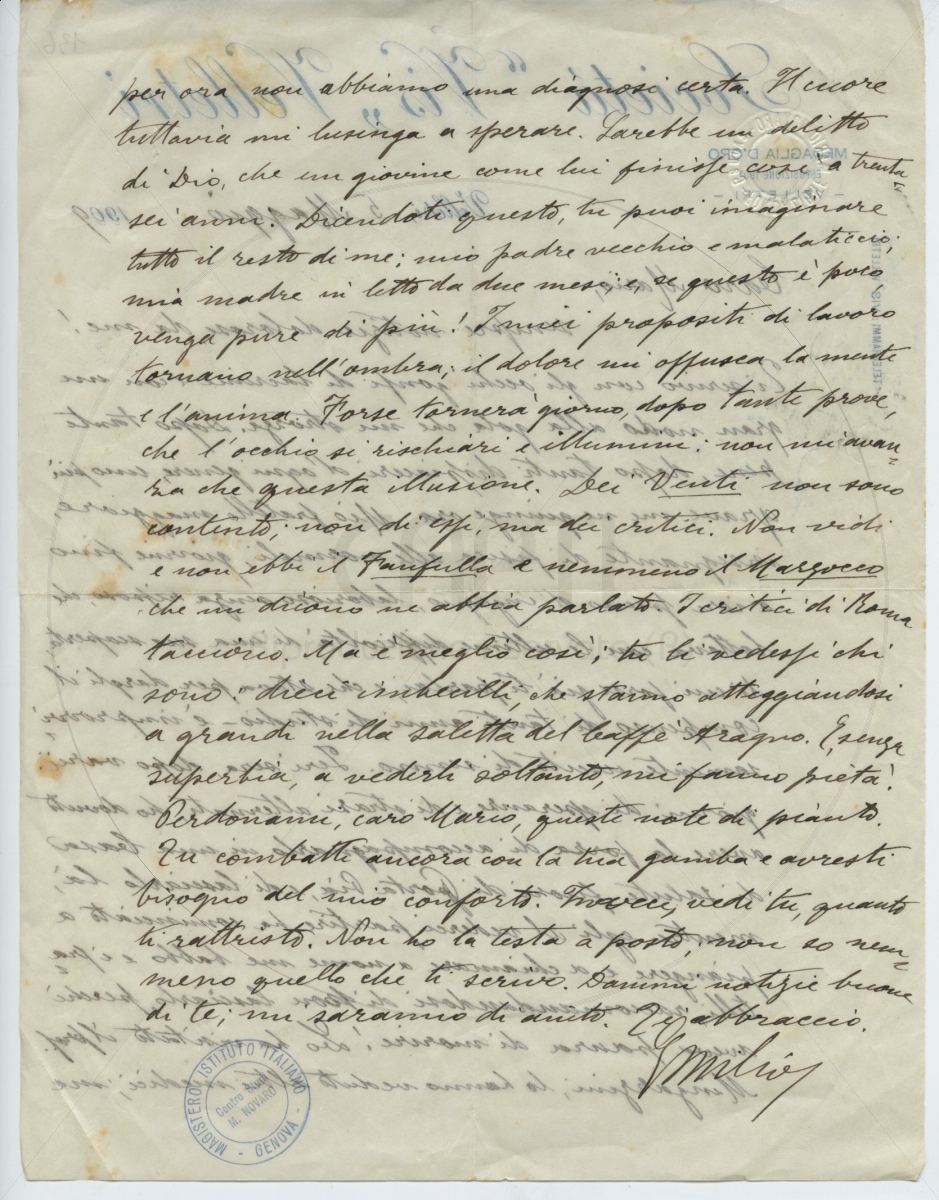 per ora non abbiamo una diagnosi certa. Il cuore
tuttavia mi lusinga a sperare. Sarebbe un delitto
di Dio, che un giovine come lui finisse così a trenta=
sei anni. Dicendoti questo, tu puoi imaginare
tutto il resto di me; mio padre vecchio e malaticcio;
mia madre in letto da due mesi; e, se questo è poco
venga pure di più! I miei propositi di lavoro
tornano nell'ombra; il dolore mi offusca la mente
e l'anima. Forse tornerà giorno, dopo tante prove,
che l'occhio si rischiari e illumini: non mi avan=
za che questa illusione. Dei Venti non sono
contento; non di essi, ma dei critici. Non vidi
e non ebbi il Fanfulla e nemmeno il Marzocco
che mi dicono ne abbia parlato. I critici di Roma
tacciono. Ma è meglio così; tu li vedessi chi
sono: dieci imbecilli, che stanno atteggiandosi
a grandi nella saletta del Caffè Aragno. E, senza
superbia, a vederli soltanto, mi fanno pietà.
Perdonami, caro Mario, queste note di pianto.
Tu combatti ancora con la tua gamba e avresti
bisogno del mio conforto. Invece, vedi tu, quanto
ti rattristo. Non ho la testa a posto, non so nem=
meno quello che ti scrivo. Dammi notizie buone
di te; mi saranno di aiuto. Ti abbraccio.
Emilio
MAGISTERO ISTITUTO ITALIANO
Centro Studi
M. NOVARO
- GENOVA -